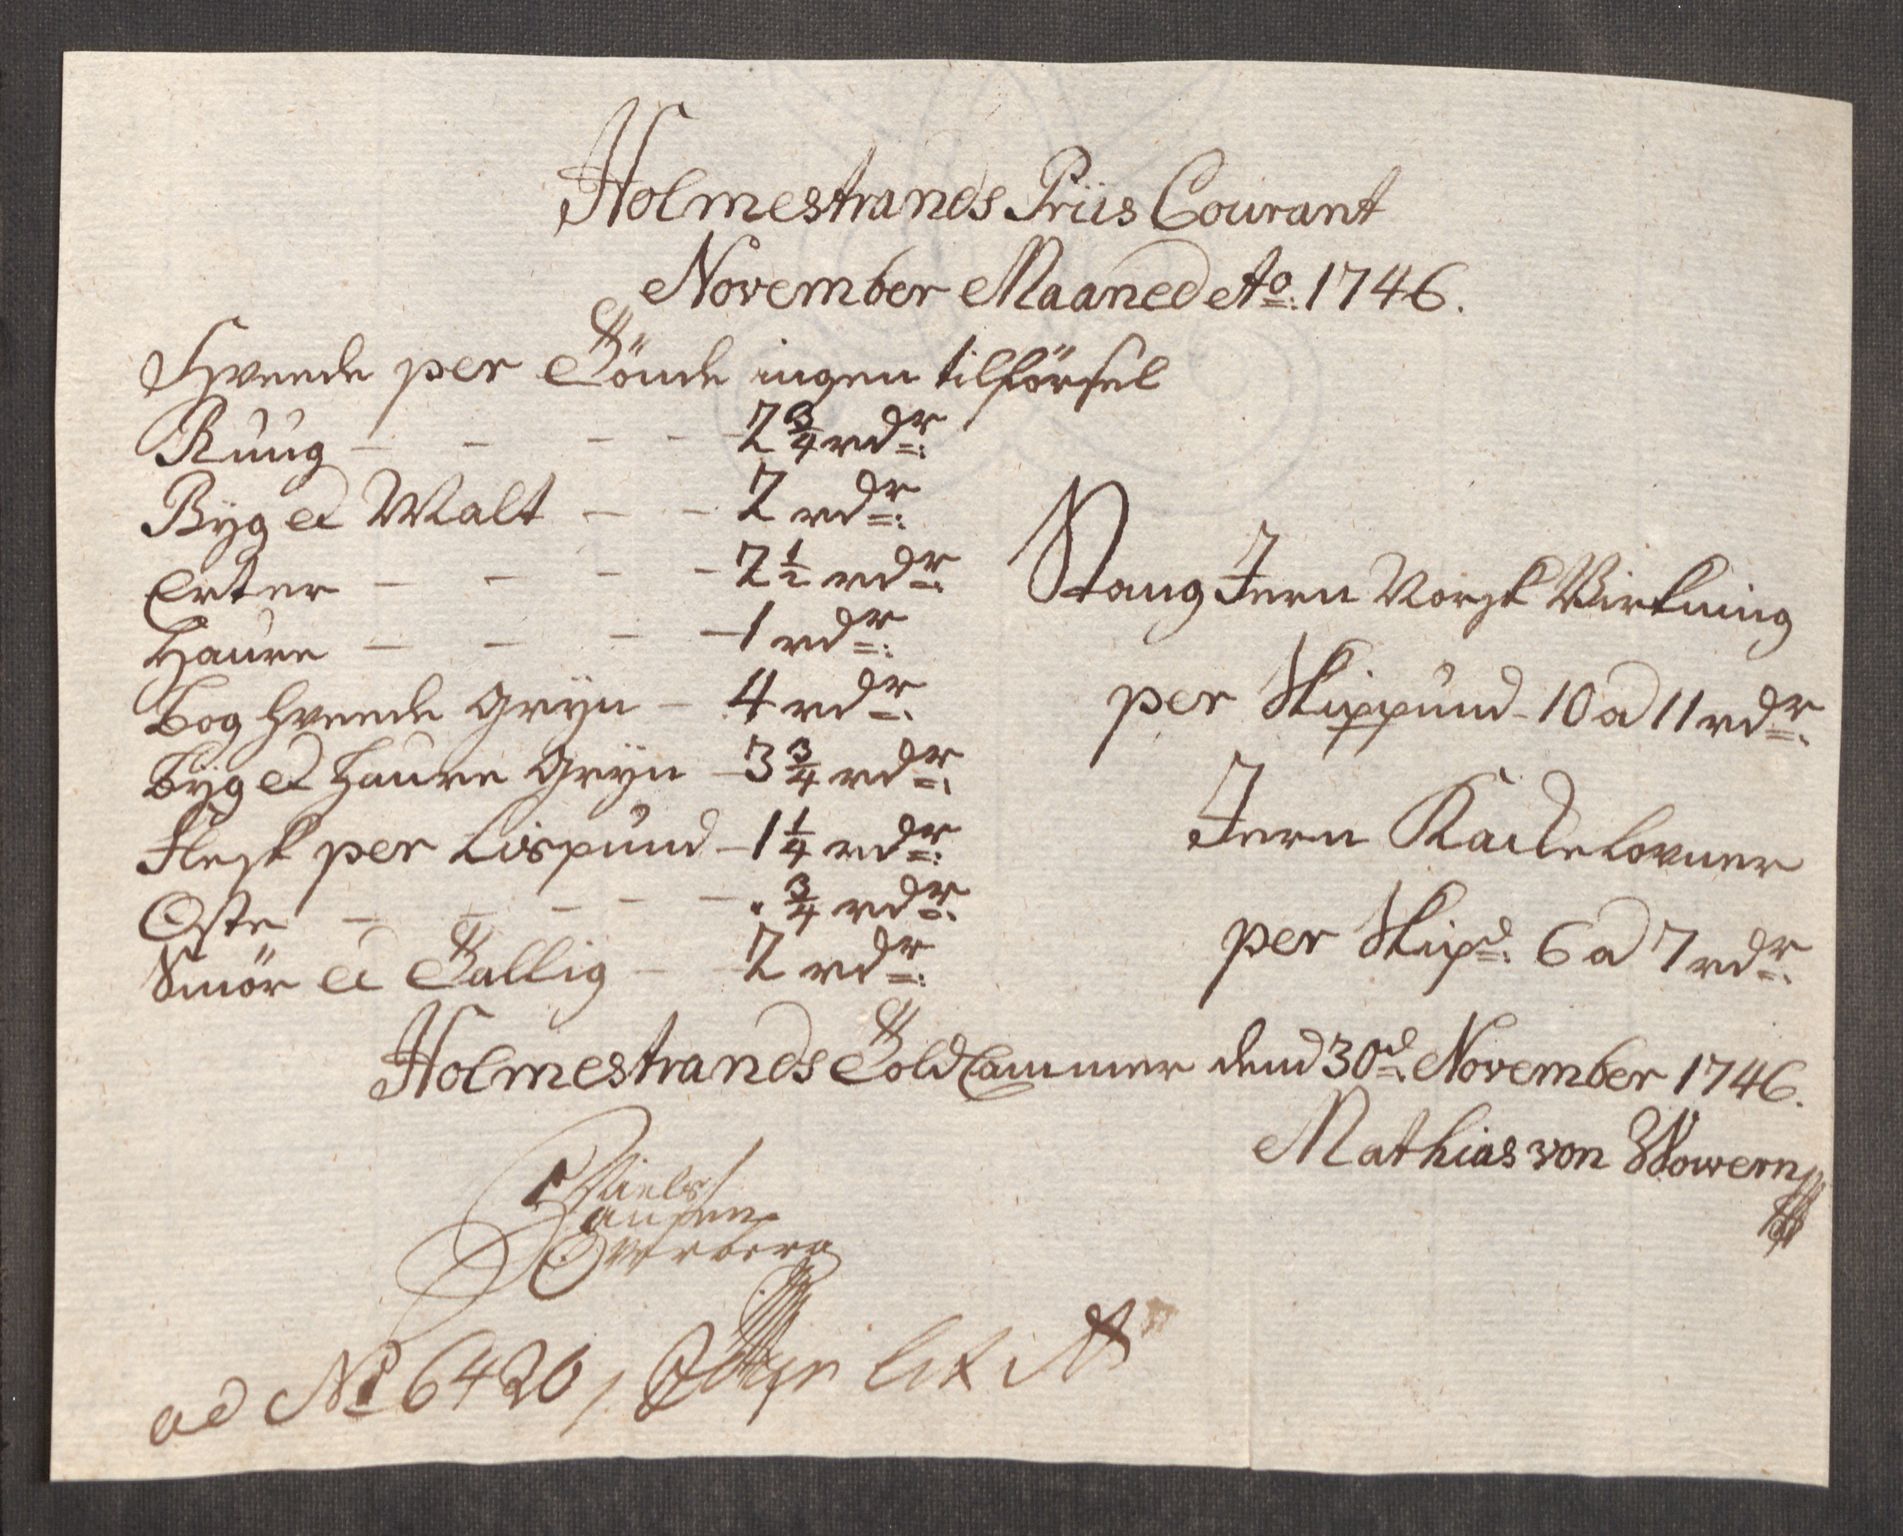 Holmestrands Priis Courant
November Maaned Ao: 1746.
Hveede per Tönde ingen tilförsel
Ruug - - - - 2 3/4 rdr:
Byg et Malt - - 2 rdr:
Erter - - - - 2 1/2 rdr:
Haure - - - - 1 rdr:
Bog hveede Gryn - 4 rdr:
Byg et Haure Gryn - 3 3/4 rdr:
Flesk per Lispund - 1 1/4 rdr:
Oste - - - - - . 3/4 rdr:
Smör et Tallig - - 2 rdr:
Stang Jern Norsk Virkning
per Skippund - 10 a 11 rdr:
Jern Kackelovner
per Skipd: 6 a 7 rdr:
Holmestrands Told Cammer dend 30d: November 1746.
Mathias von Wowern
Niels
Hansen
Overberg
ad No 6420, lit A